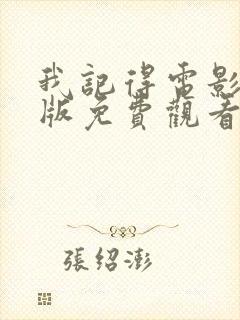 我記得電影
版免費觀看
張紹澎